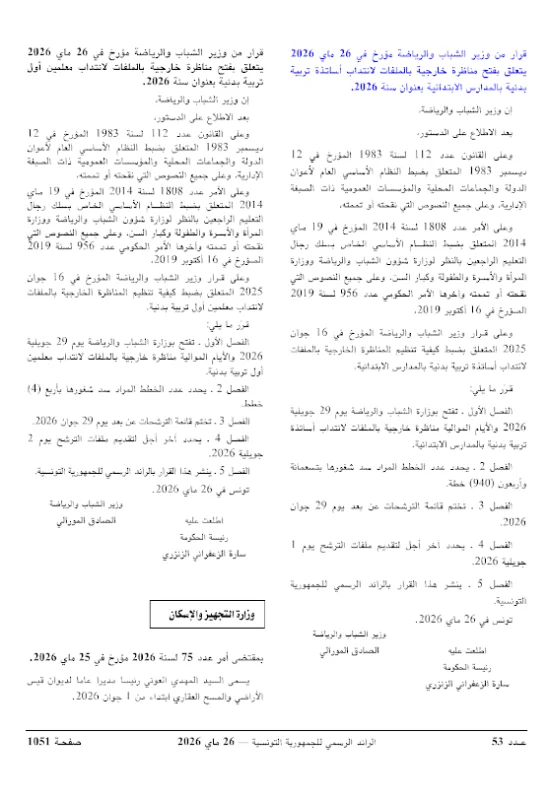 قرار من وزير الشباب والرياضة مؤرخ في 26 ماي 2026
يتعلق بفتح مناظرة خارجية بالملفات لانتداب أساتذة تربية
بدنية بالمدارس الابتدائية بعنوان سنة 2026.
إن وزير الشباب والرياضة،
بعد الاطلاع على الدستور،
وعلى القانون عدد 112 لسنة 1983 المؤرخ في 12
ديسمبر 1983 المتعلق بضبط النظام الأساسي العام لأعوان
الدولة والجماعات المحلية والمؤسسات العمومية ذات الصبغة
الإدارية، وعلى جميع النصوص التي نقحته أو تممته،
وعلى الأمر عدد 1808 لسنة 2014 المؤرخ في 19 ماي
2014 المتعلق بضبط النظام الأساسي الخاص بسلك رجال
التعليم الراجعين بالنظر لوزارة شؤون الشباب والرياضة ووزارة
المرأة والأسرة والطفولة وكبار السن، وعلى جميع النصوص التي
نقحته أو تممته وآخرها الأمر الحكومي عدد 956 لسنة 2019
المؤرخ في 16 أكتوبر 2019،
وعلى قرار وزير الشباب والرياضة المؤرخ في 16 جوان
2025 المتعلق بضبط كيفية تنظيم المناظرة الخارجية بالملفات
لانتداب أساتذة تربية بدنية بالمدارس الابتدائية.
قرر ما يلي:
الفصل الأول ـ تفتح بوزارة الشباب والرياضة يوم 29 جويلية
2026 والأيام الموالية مناظرة خارجية بالملفات لانتداب أساتذة
تربية بدنية بالمدارس الابتدائية.
الفصل 2 ـ يحدد عدد الخطط المراد سد شغورها بتسعمائة
وأربعون (940) خطة.
الفصل 3 ـ تختم قائمة الترشحات عن بعد يوم 29 جوان
2026.
الفصل 4 ـ يحدد آخر أجل لتقديم ملفات الترشح يوم 1
جويلية 2026.
الفصل 5 ـ ينشر هذا القرار بالرائد الرسمي للجمهورية
التونسية.
تونس في 26 ماي 2026.
وزير الشباب والرياضة
الصادق المورالي
اطلعت عليه
رئيسة الحكومة
سارة الزعفراني الزنزري
قرار من وزير الشباب والرياضة مؤرخ في 26 ماي 2026
يتعلق بفتح مناظرة خارجية بالملفات لانتداب معلمين أول
تربية بدنية بعنوان سنة 2026.
إن وزير الشباب والرياضة،
بعد الاطلاع على الدستور،
وعلى القانون عدد 112 لسنة 1983 المؤرخ في 12
ديسمبر 1983 المتعلق بضبط النظام الأساسي العام لأعوان
الدولة والجماعات المحلية والمؤسسات العمومية ذات الصبغة
الإدارية، وعلى جميع النصوص التي نقحته أو تممته،
وعلى الأمر عدد 1808 لسنة 2014 المؤرخ في 19 ماي
2014 المتعلق بضبط النظام الأساسي الخاص بسلك رجال
التعليم الراجعين بالنظر لوزارة شؤون الشباب والرياضة ووزارة
المرأة والأسرة والطفولة وكبار السن، وعلى جميع النصوص التي
نقحته أو تممته وآخرها الأمر الحكومي عدد 956 لسنة 2019
المؤرخ في 16 أكتوبر 2019،
وعلى قرار وزير الشباب والرياضة المؤرخ في 16 جوان
2025 المتعلق بضبط كيفية تنظيم المناظرة الخارجية بالملفات
لانتداب معلمين أول تربية بدنية.
قرر ما يلي:
الفصل الأول ـ تفتح بوزارة الشباب والرياضة يوم 29 جويلية
2026 والأيام الموالية مناظرة خارجية بالملفات لانتداب معلمين
أول تربية بدنية.
الفصل 2 ـ يحدد عدد الخطط المراد سد شغورها بأربع (4)
خطط.
الفصل 3 ـ تختم قائمة الترشحات عن بعد يوم 29 جوان 2026.
الفصل 4 ـ يحدد آخر أجل لتقديم ملفات الترشح يوم 2
جويلية 2026.
الفصل 5 ـ ينشر هذا القرار بالرائد الرسمي للجمهورية التونسية.
تونس في 26 ماي 2026.
وزير الشباب والرياضة
الصادق المورالي
اطلعت عليه
رئيسة الحكومة
سارة الزعفراني الزنزري
وزارة التجهيز والإسكان
بمقتضى أمر عدد 75 لسنة 2026 مؤرخ في 25 ماي 2026.
يسمى السيد المهدي العوني رئيسا مديرا عاما لديوان قيس
الأراضي والمسح العقاري ابتداء من 1 جوان 2026.
عدد 53
الرائد الرسمي للجمهورية التونسية — 26 ماي 2026
صفحة 1051